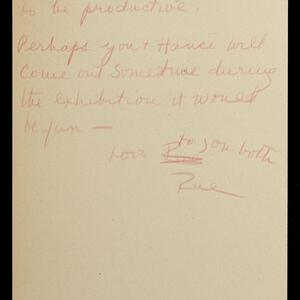 to be productive.
Perhaps you + Hanse will
Come out Sometime during
the exhibition it would
be fun —
Love to you both
Rue